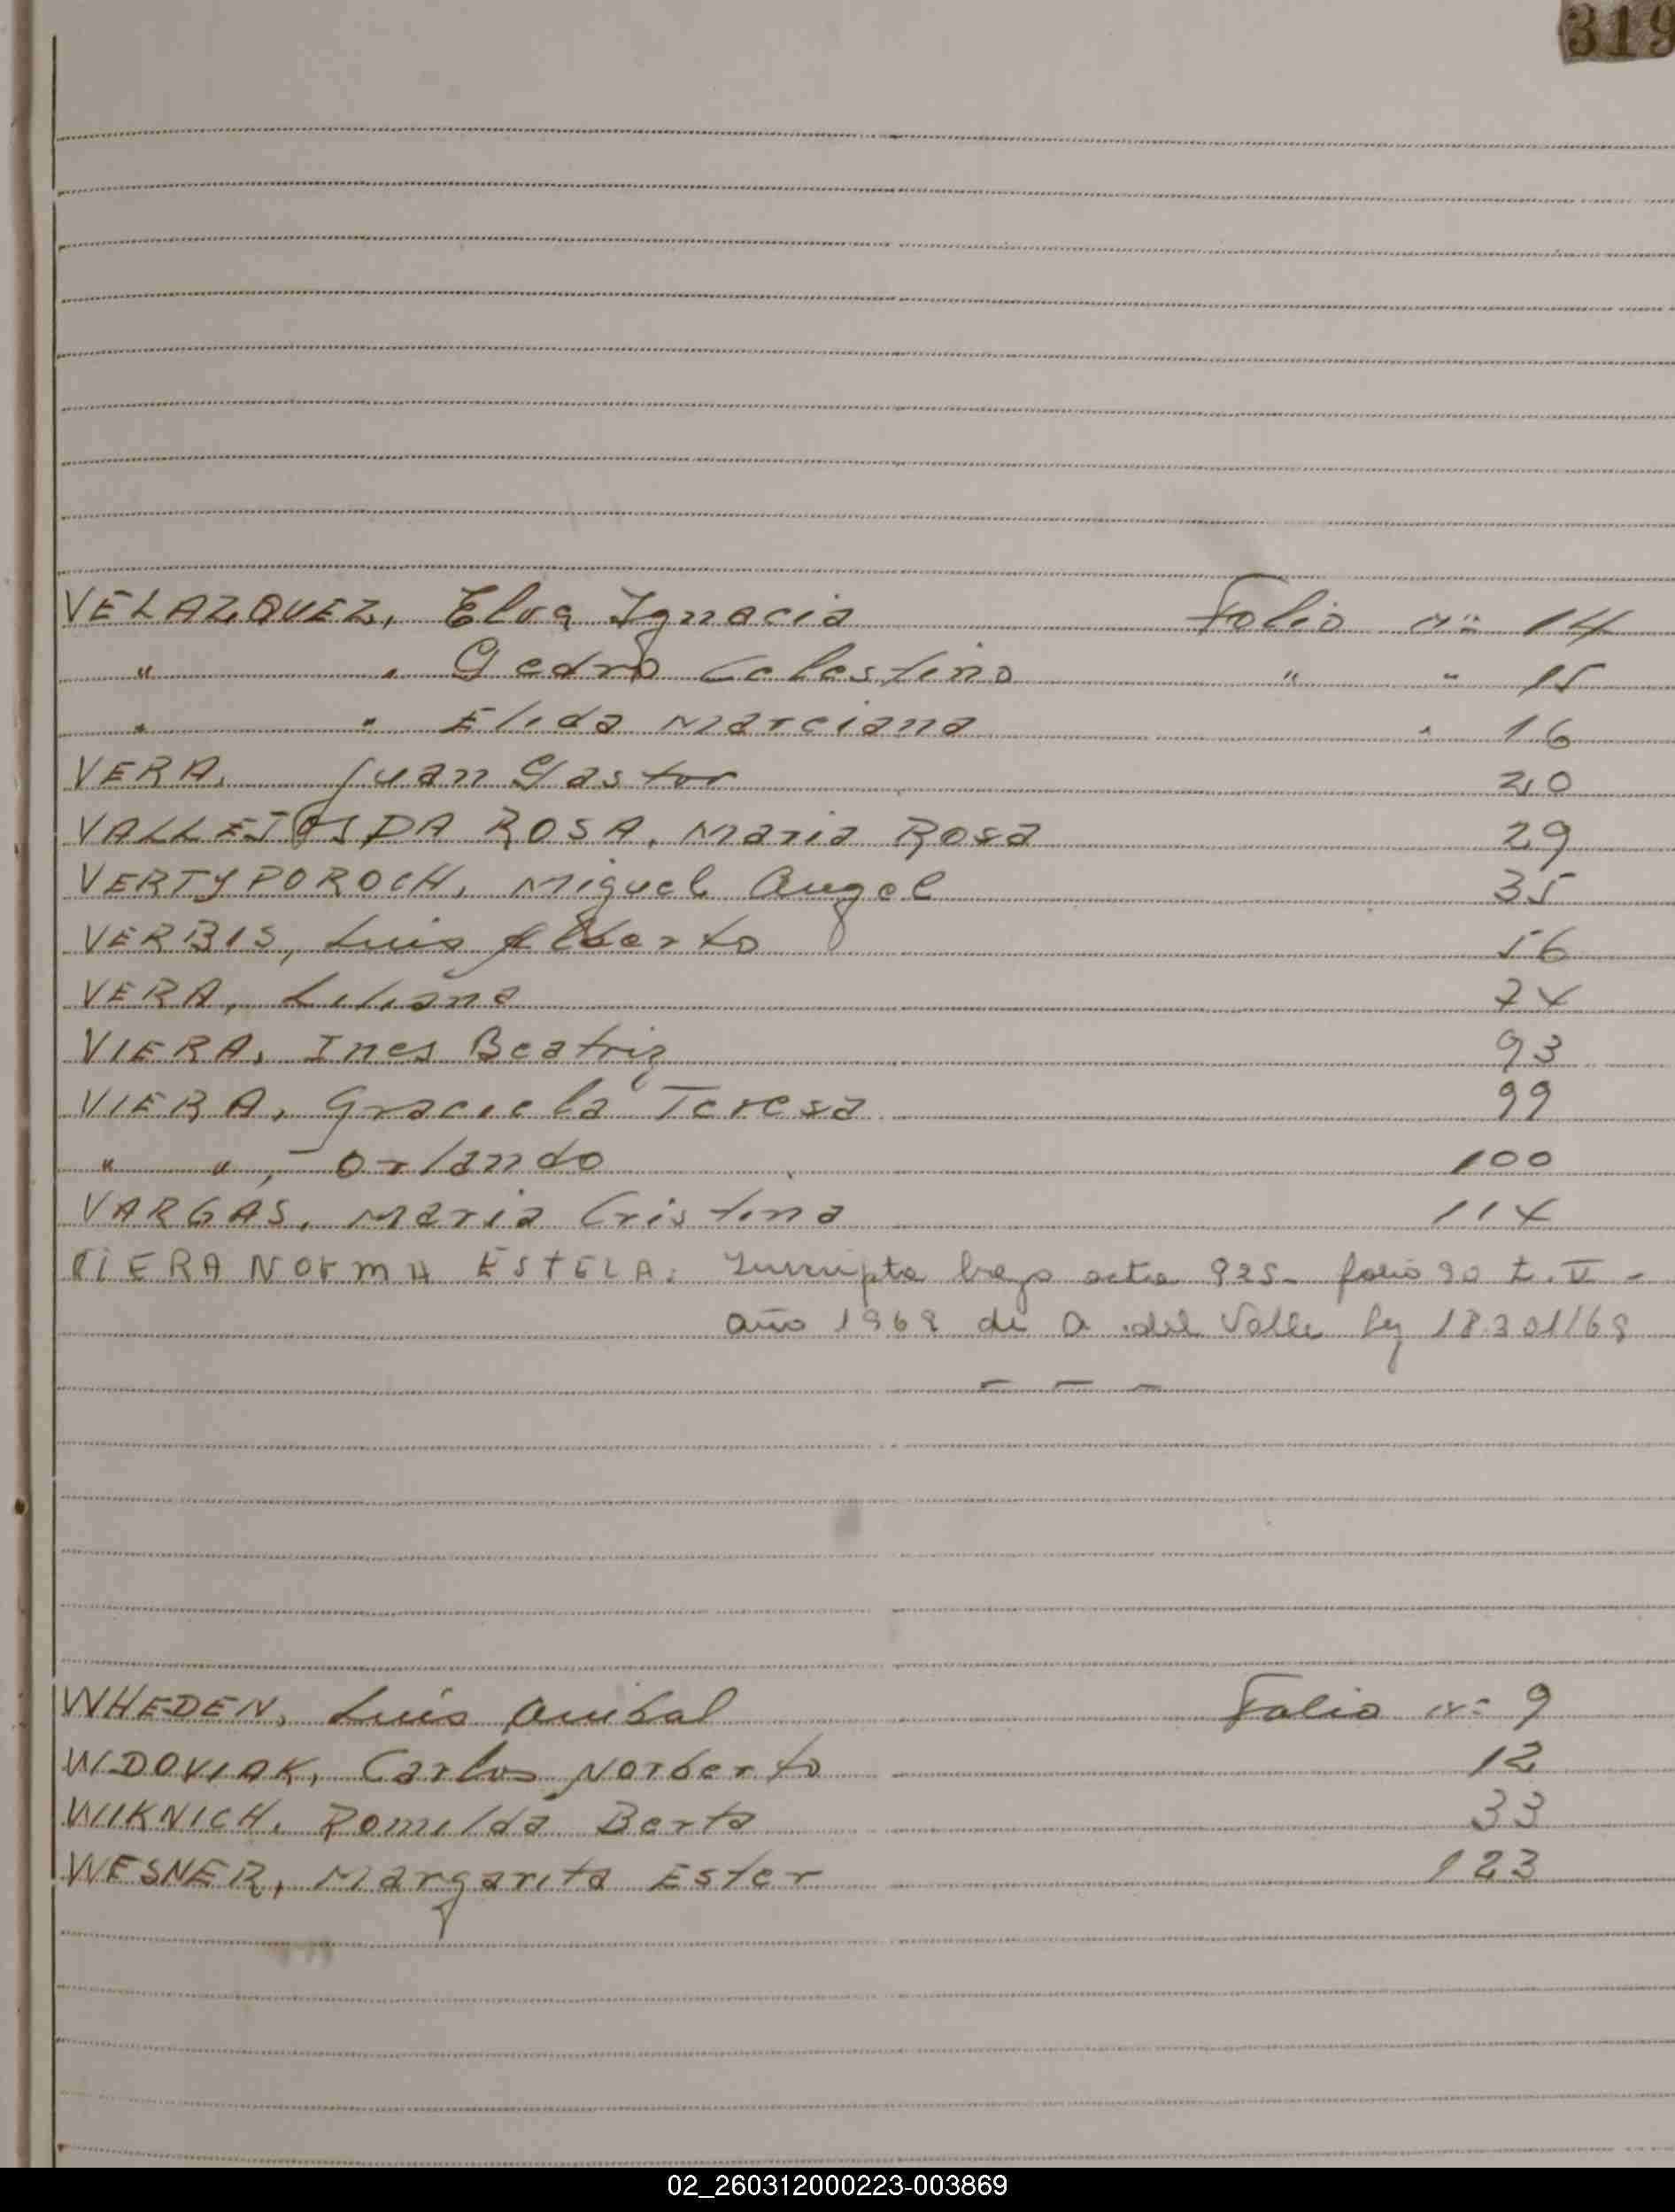 319
VELAZQUEZ, Elva Ignacia Folio nº 14
" " Pedro Celestino " " 15
" " Elida Marciana " 16
VERA, Juan Gastor 20
VALLEJOS DA ROSA, Maria Rosa 29
VERTYPOROCH, Miguel Angel 35
VERBIS, Luis Alberto 56
VERA, Liliana 74
VIERA, Ines Beatriz 93
VIERA, Graciela Teresa 99
" ", Orlando 100
VARGAS, Maria Cristina 114
VIERA NORMA ESTELA: Inscripta bajo acta 925- folio 90 t. II -
año 1969 de A. del Valle ley 18.301/69
WHEDEN, Luis Anibal Folio nº 9
WDOVIAK, Carlos Norberto 12
WIKNICH, Romilda Berta 33
WESNER, Margarita Ester 123
02_260312000223-003869